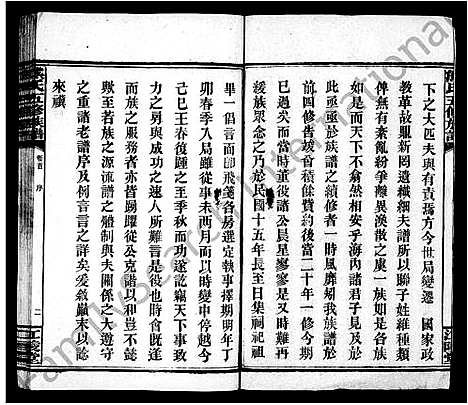 下之大匹夫與有責焉方今世局變遷 國家政
教革故鼎新罔遺纖細夫譜所以聯子姓維種類
俾無有紊亂紛爭離異渙散之虞一族如是各族
皆然而國家有不怡然相安乎海內諸君子多見
此亟亟於族譜之續修者一時風靡矧我族譜於
前四修告竣曾積餘貲約後當二十年一修今期
已矣奈當時董役諸公晨星寥寥是以
緩修眾議念之乃於民國十五年長至日集祠祀祖
畢一倡言而即飛箋各房選定執事擇期明年丁
卯春季入局誰從事未兩月而以時變中停越今
己巳王春復踵之至季秋而功遂訖竊天下事致
力之勇與成功之速人所難言是役也時會既艱
而族之服務者亦皆踴躍從公克譜以和豈不懿
歟至若族之源流譜之體制與夫關係之大遵守
之重諸老譜序及例言言之詳矣爰敘巔末以諗
來禩
卷首 序
二